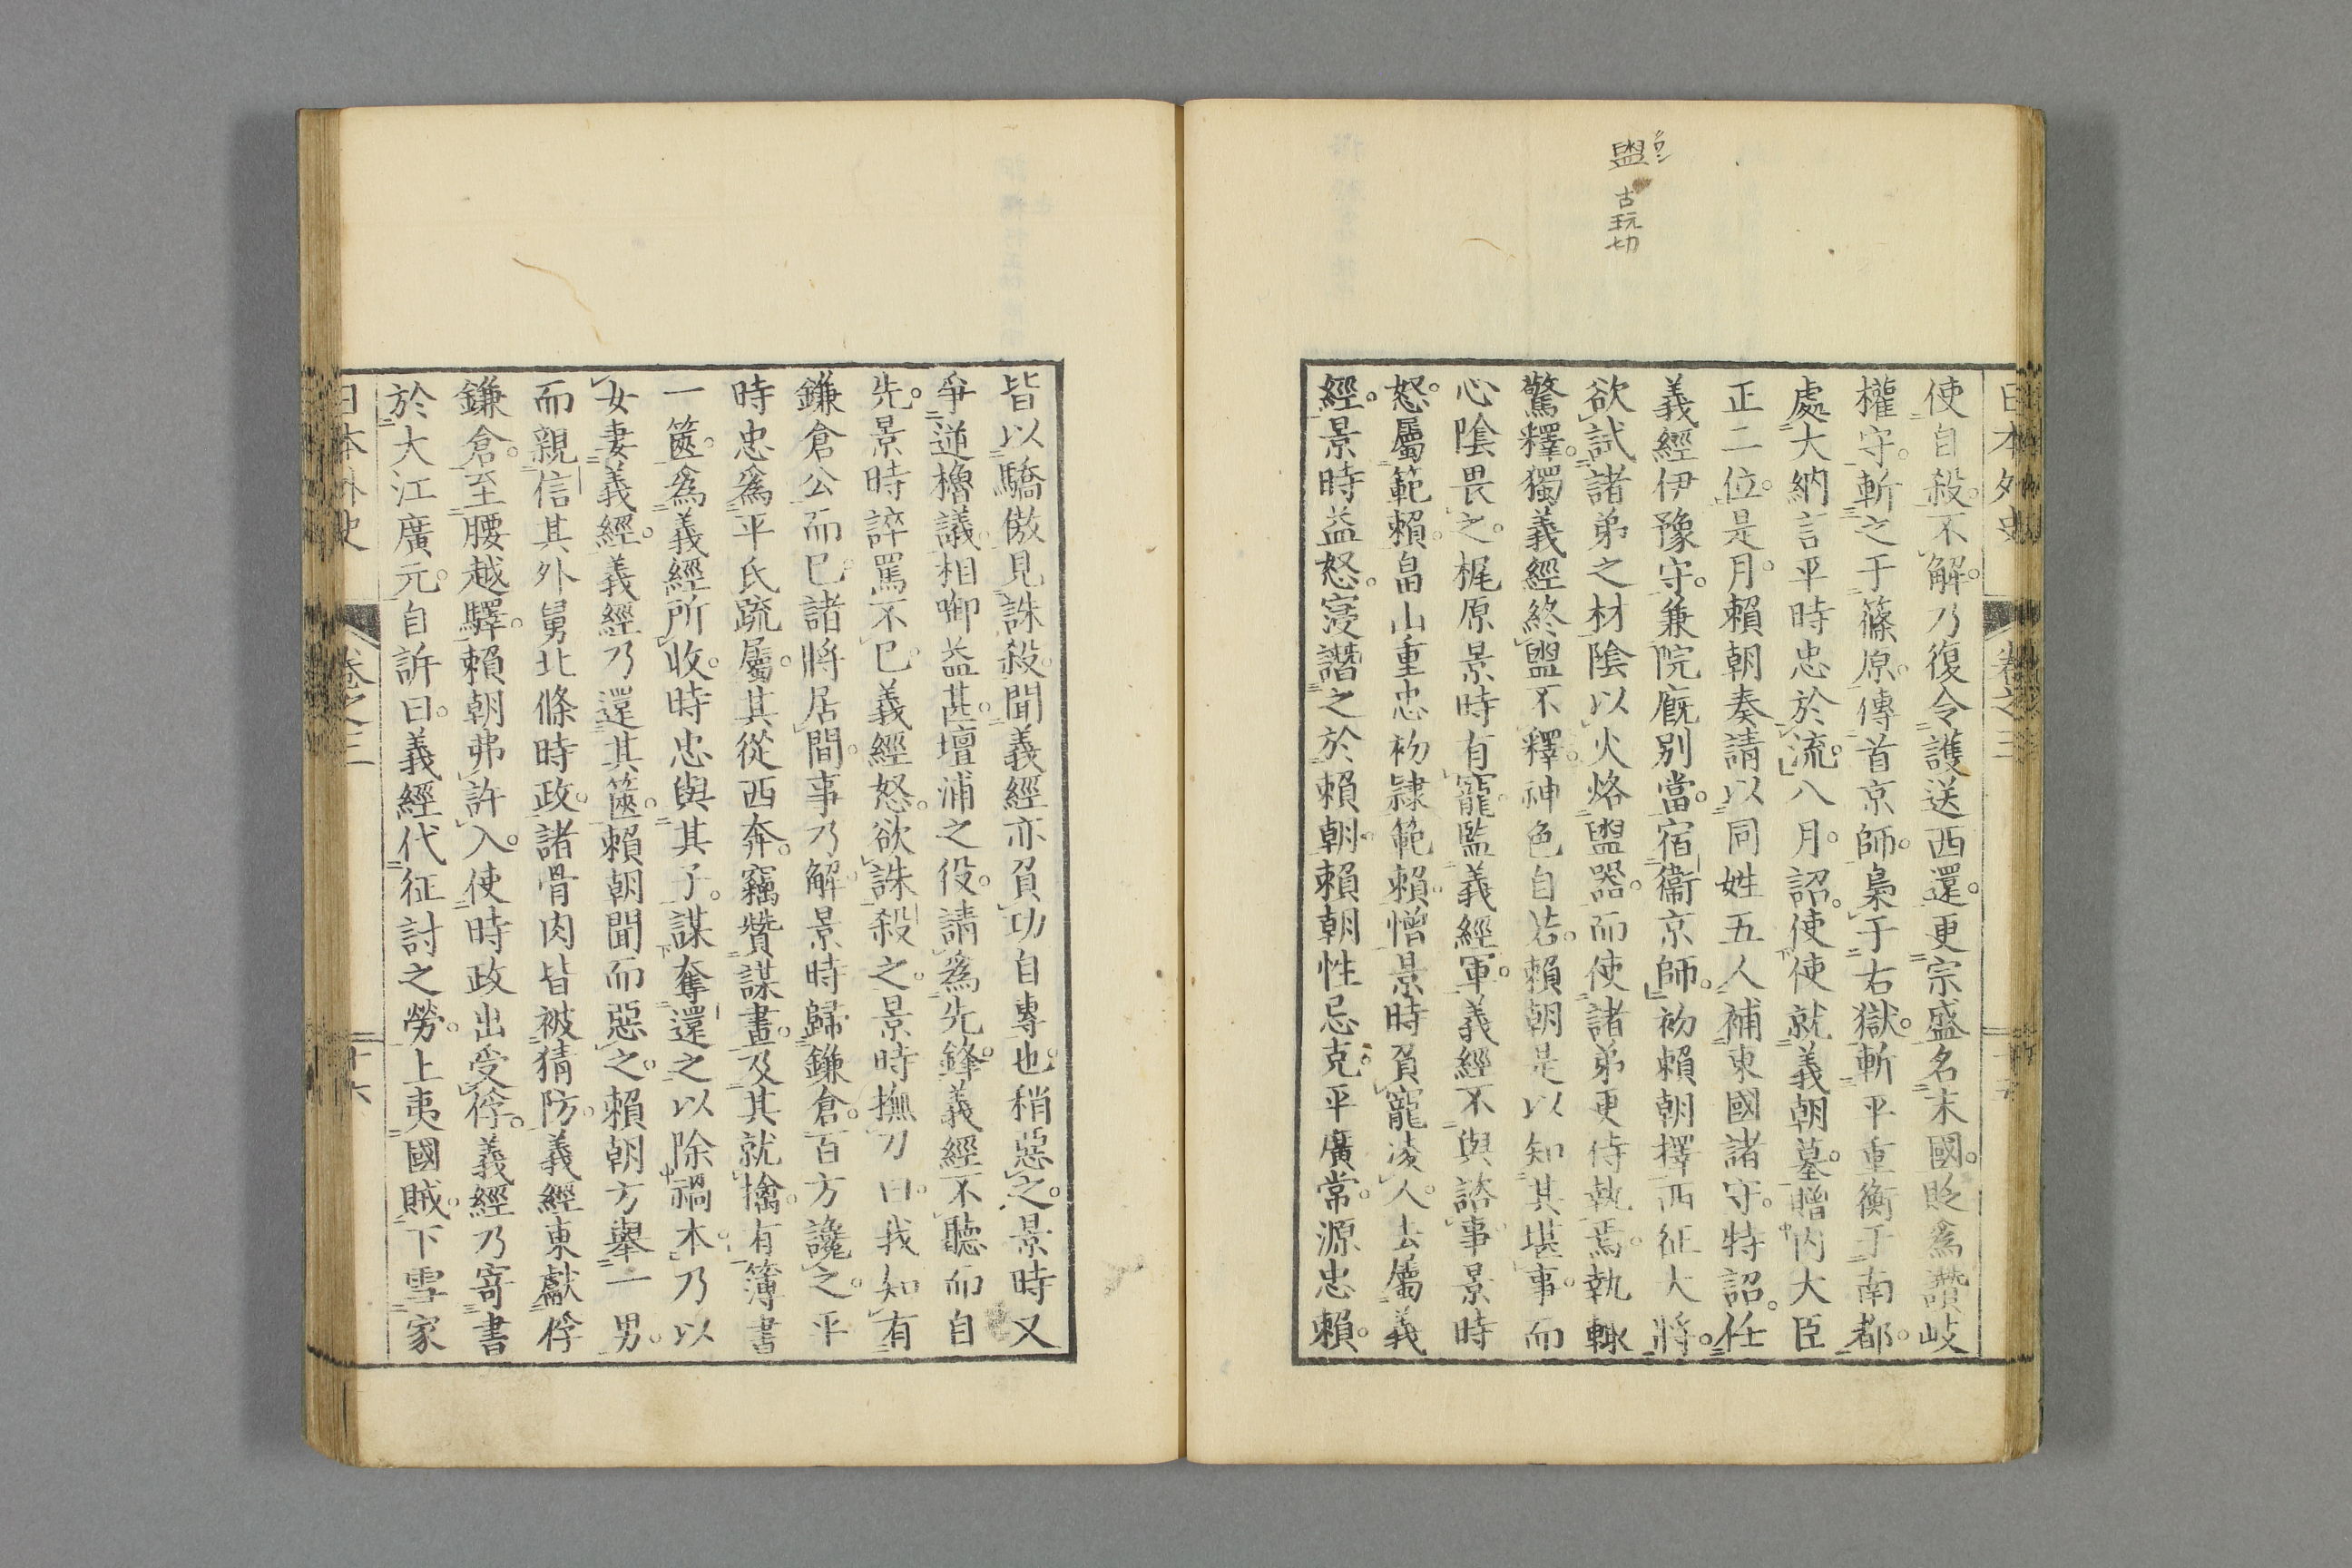 盥
古玩切
日本外史 卷之三
使自殺。不解。乃復令護送西還。更宗盛名末國。貶爲讚岐
權守。斬之于篠原。傳首京師。梟于右獄。斬平重衡于南都。
處大納言平時忠於流。八月。詔。使使就義朝墓。贈內大臣
正二位。是月。賴朝奏請以同姓五人補東國諸守。特詔。任
義經伊豫守。兼院廐別當。宿衞京師。初賴朝擇西征大將。
欲試諸弟之材。陰以火烙盥器。而使諸弟更侍執焉。執輒
驚釋。獨義經終盥不釋。神色自若。賴朝是以知其堪事。而
心陰畏之。梶原景時有寵。監義經軍。義經不與諮事。景時
怒。屬範賴。畠山重忠初隷範賴。憎景時負寵凌人。去屬義
經。景時益怒。寖譖之於賴朝。賴朝性忌克。平廣常。源忠賴。
皆以驕傲見誅殺。聞義經亦負功自專也。稍惡之。景時又
爭逆櫓議。相啣益甚。壇浦之役。請爲先鋒。義經不聽而自
先。景時誶罵不已。義經怒。欲誅殺之。景時撫刀曰。我知有
鎌倉公而已。諸將居間。事乃解。景時歸鎌倉。百方讒之。平
時忠爲平氏疏屬。其從西奔。竊贊謀畫。及其就擒。有簿書
一篋。爲義經所收。時忠與其子。謀奪還之以除禍本。乃以
女妻義經。義經乃還其篋。賴朝聞而惡之。賴朝方舉一男。
而親信其外舅北條時政。諸骨肉皆被猜防。義經東獻俘
鎌倉。至腰越驛。賴朝弗許入。使時政出受俘。義經乃寄書
於大江廣元。自訴曰。義經代征討之勞。上夷國賊。下雪家
日本外史 卷之三 十六